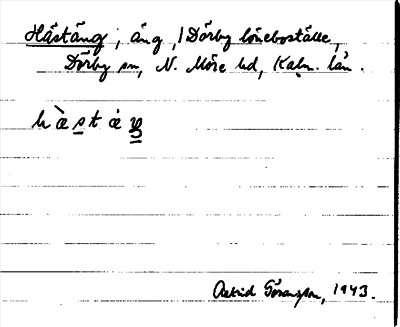 Hästäng, äng, Dörby löneboställe,
Dörby sn, N. Möre hd, Kalm. län.
h æ̀ s t ǽ ŋ
Astrid Göransson, 1943.